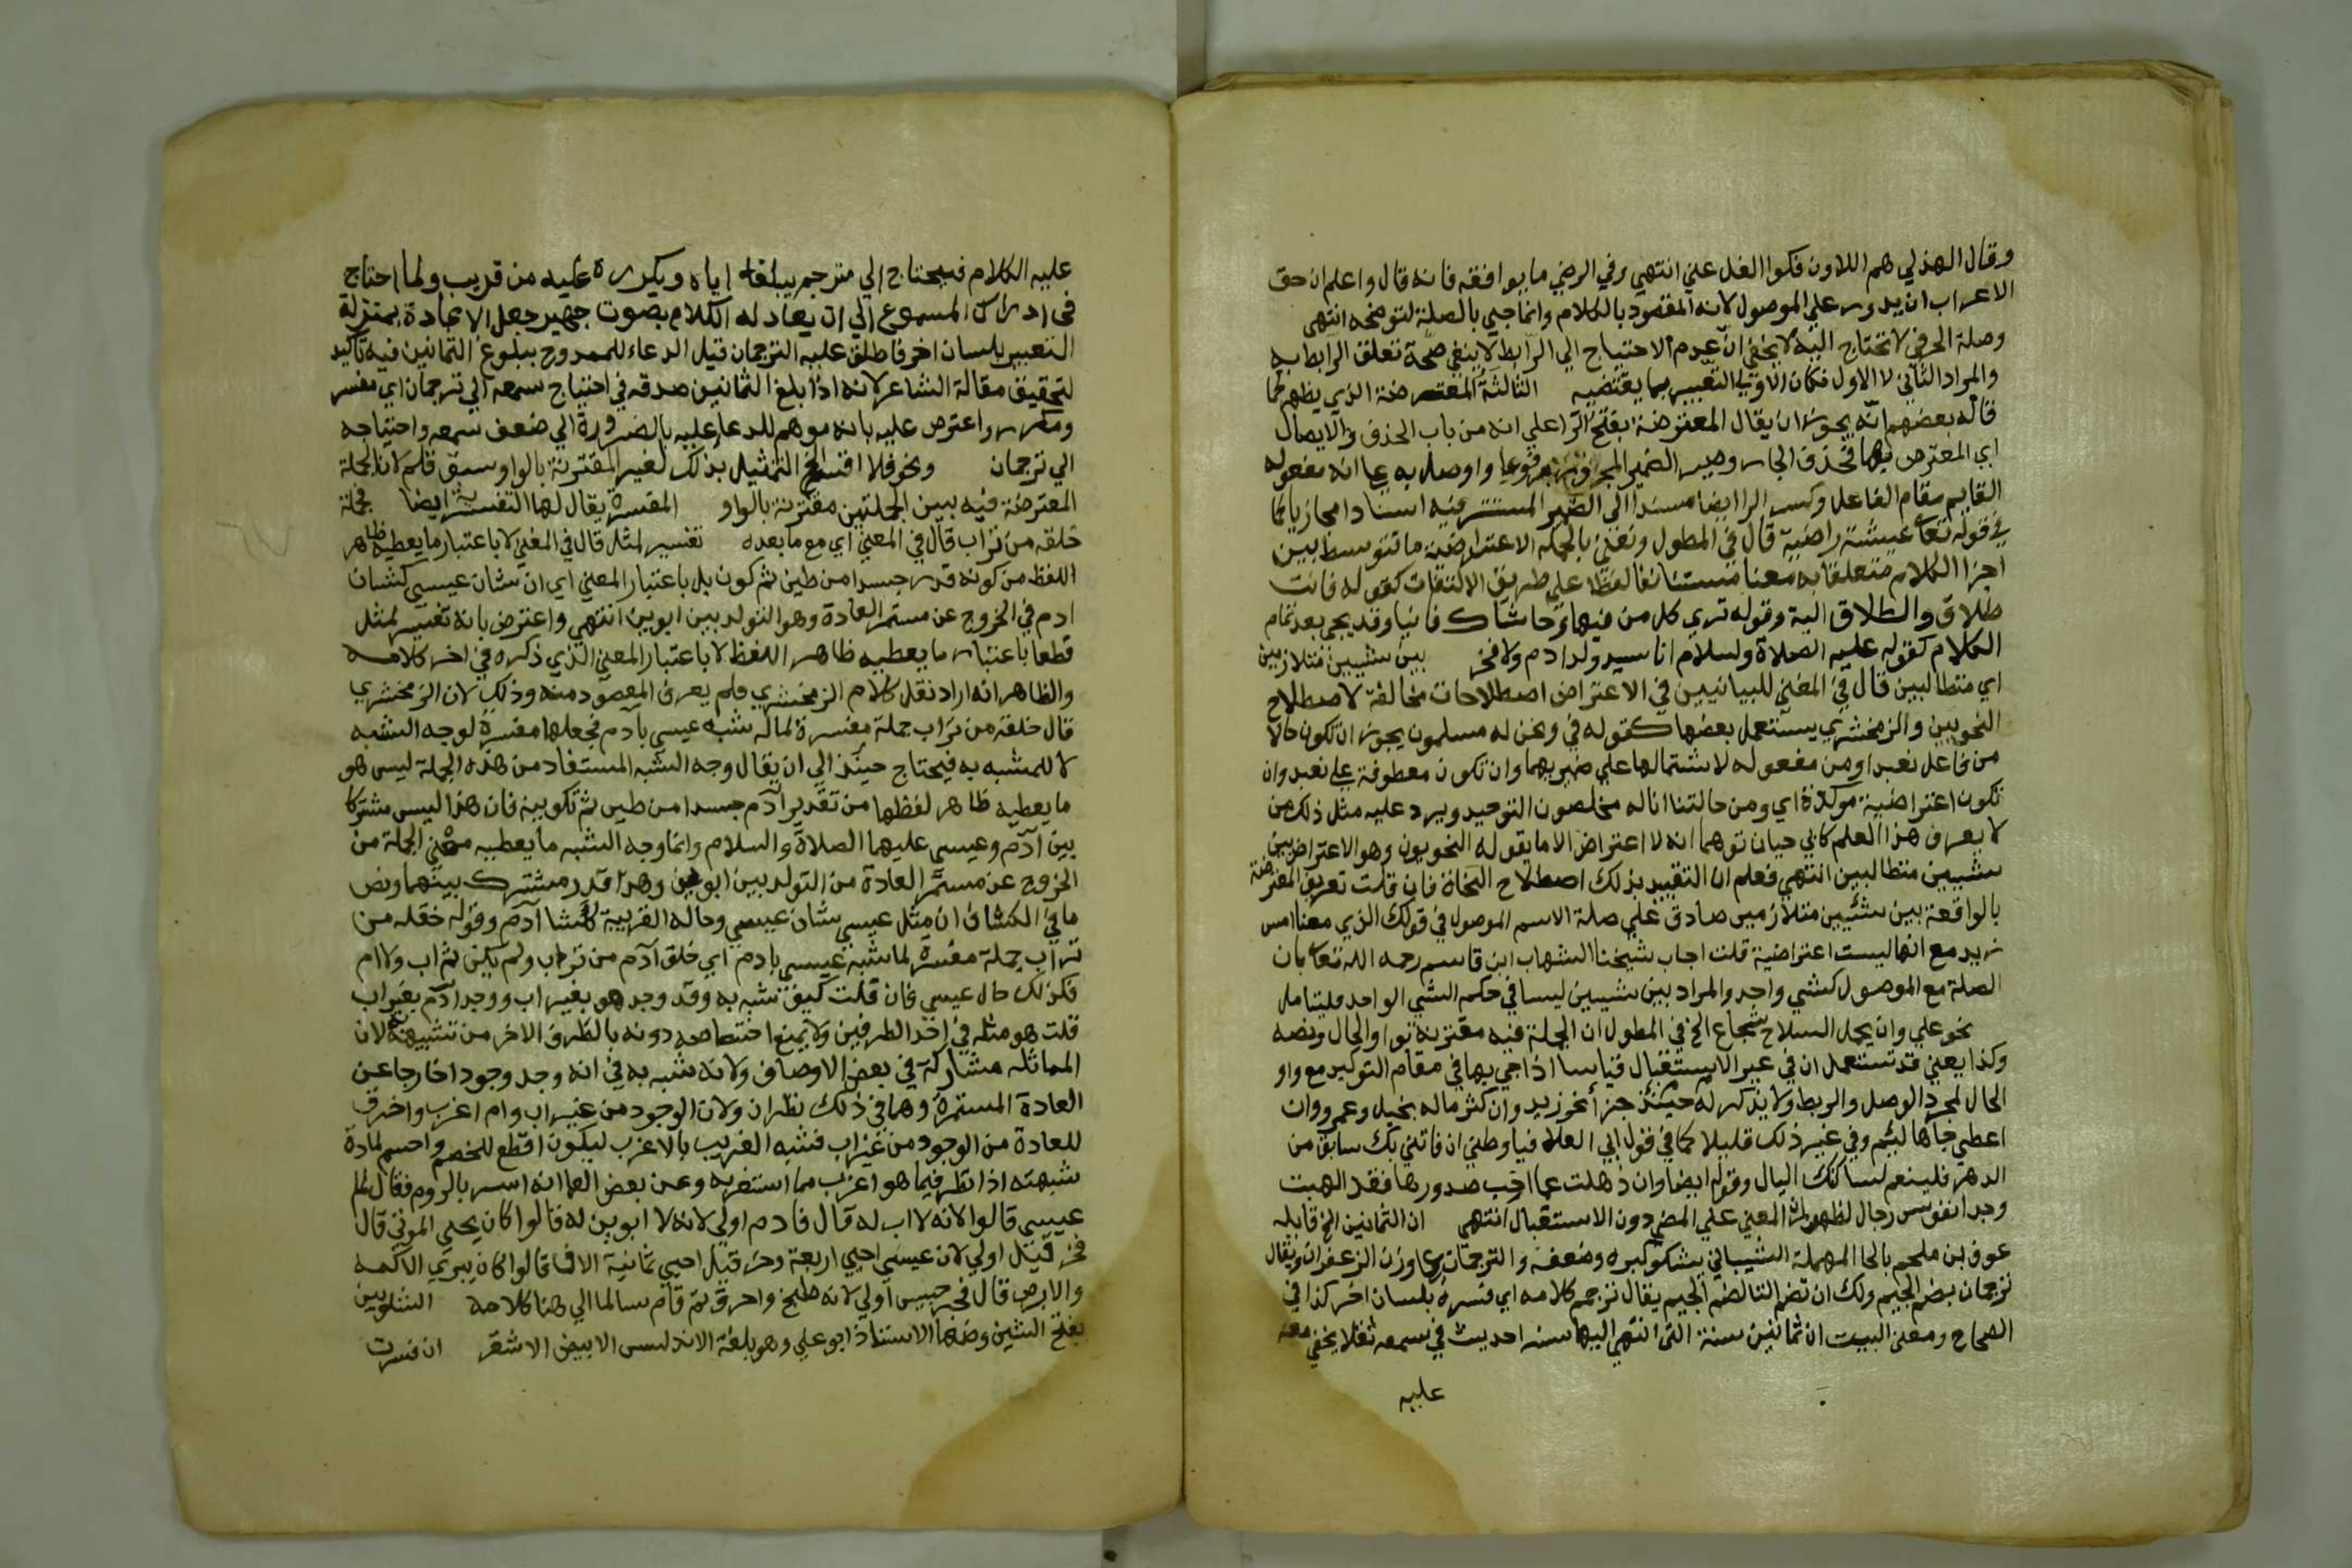 وقال الهذلي هم اللاون فكوا الغل عني انتهي وفي الرضي ما يوافقه فانه قال واعلم ان حق
الاعراب ان يدور علي الموصول لانه المقصود بالكلام وانما جيي بالصلة لتوضحه انتهى
وصلة الحرفي لا تحتاج اليه لا يخفي ان عدم الاحتياج الي الرابط لا ينفي صحة تعلق الرابط به
والمراد الثاني لا الاول فكان الاولي التعبير بما يقتضيه الثالثة المعترضة الذي يظهر كما
قاله بعضهم انه يجوز ان يقال المعترضة بفتح الرا علي انه من باب الحذف والايصال
اي المعترض بها فحذف الجار وصير الضمير المجرور مرفوعا واوصل به علي انه مفعوله
القايم مقام الفاعل وكسر الرا ايضا مسندا الي الضمير المستتر فيه اسنادا مجازيا كما
في قوله تعا عيشة راضية قال في المطول ونعني بالجملة الاعتراضية ما تتوسط بين
اجزا الكلام متعلقا به معنا مستئنفا لفظا علي طريق الالتفات كقوله فانت
طلاق والطلاق الية وقوله تري كل من فيها وحاشاك فانيا وقد يجي بعد تمام
الكلام كقوله عليه الصلاة ولسلام انا سيد ولد ادم ولا فخر بين شيين متلازمين
اي متطالبين قال في المغني للبيانيين في الاعتراض اصطلاحات مخالفة لاصطلاح
النحويين والزمخشري يستعمل بعضها كقوله في ونحن له مسلمون يجوز ان تكون حالا
من فاعل نعبد او من مفعوله لاشتمالها علي ضميريهما وان تكون معطوفة علي نعبد وان
تكون اعتراضية موكدة اي ومن حالتنا انا له مخلصون التوحيد ويرد عليه مثل ذلك من
لا يعرف هذا العلم كابي حيان توهما انه لا اعتراض الا ما يقوله النحويون وهو الاعتراض بين
شيين متطالبين انتهي فعلم ان التقييد بذلك اصطلاح النحاة فان قلت تعريف المعترضة
بالواقعة بين شيئين متلازمين صادق علي صلة الاسم الموصول في قولك الذي معنا امس
زيد مع انها ليست اعتراضية قلت اجاب شيخنا الشهاب ابن قاسم رحمه الله تعا بان
الصلة مع الموصول كشي واحد والمراد بين شيين ليسا في حكم الشي الواحد فليتامل
نحو علي وان يحمل السلاح شجاع الخ في المطول ان الجملة فيه مقترنة بواو الحال ونصه
وكذا يعني قد تستعمل ان في غير الاستقبال قياسا اذا جي بها في مقام التوكيد مع واو
الحال لمجرد الوصل والربط ولا يذكر له حينئذ جزأ نحو زيد وان كثر ماله بخيل وعمرو وان
اعطي جاها ليئم وفي غير ذلك قليلا كما في قول ابي العلا فيا وطني ان فاتني بك سابق من
الدهر فلينعم لساكنك البال وقوله ايضا وان ذهلت عما اجب صدورها فقد الهبت
وجدا نفوس رجال لظهور ان المعني علي المضي دون الاستقبال انتهى ان الثمانين الخ قايله
عوف بن ملحم بالحا المهملة الشيباني يشكو كبره وضعفه والترجمان علي وزن الزعفران ويقال
ترجمان بضم الجيم ولك ان تضم التا لضم الجيم يقال ترجم كلامه اي فسره بلسان اخر كذا في
الصحاح ومعني البيت ان ثمانين سنة التي انتهي اليها سنه احديث في سمعه ثقلا يخفي معه
عليه
عليه الكلام فيحتاج الي مترجم يبلغه اياه ويكرره عليه من قريب ولما احتاج
في ادراك المسموع الي ان يعاد له الكلام بصوت جهير جعل الاعادة بمنزلة
التعبير بلسان اخر فاطلق عليه الترجمان قيل الدعاء للممدوح ببلوغ الثمانين فيه تاكيد
لتحقيق مقالة الشاعر لانه اذا بلغ الثمانين صدقه في احتياج سمعه الي ترجمان اي مفسر
ومكرر واعترض عليه بانه موهم للدعا عليه بالضرورة الي ضعف سمعه واحتياجه
الي ترجمان ونحو فلا اقسم الخ التمثيل بذلك لغير المقترنة بالواو سبق قلم لان الجملة
المعترضة فيه بين الجملتين مقترنة بالواو المفسرة يقال لها التفسيرية ايضا فجملة
خلقه من تراب قال في المغني اي مع ما بعده تفسير لمثل قال في المغني لا باعتبار ما يعطيه ظاهر
اللفظ من كونه قدر جسدا من طين ثم كون بل باعتبار المعني اي ان شان عيسي كشان
ادم في الخروج عن مستمر العادة وهو التولد بين ابوين انتهي واعترض بانه تفسير لمثل
قطعا باعتبار ما يعطيه ظاهر اللفظ لا باعتبار المعني الذي ذكره في اخر كلامه
والظاهر انه اراد نقل كلام الزمخشري فلم يعرف المقصود منه وذلك لان الزمخشري
قال خلقه من تراب جملة مفسرة لما له شبه عيسي بآدم فجعلها مفسرة لوجه الشبه
لا للمشبه به فيحتاج حينئذ الي ان يقال وجه الشبه المستفاد من هذه الجملة ليس هو
ما يعطيه ظاهر لفظها من تقدير آدم جسدا من طين ثم تكوينه فان هذا ليس مشتركا
بين آدم وعيسي عليهما الصلاة والسلام وانما وجه الشبه ما يعطيه معني الجملة من
الخروج عن مستمر العادة من التولد بين ابوين وهذا قدر مشترك بينهما ونص
ما في الكشاف ان مثل عيسي شان عيسي وحاله الغريبة كشا آدم وقوله خقله من
تراب جملة مفسرة لما شبه عيسي بادم اي خلق آدم من تراب ولم يكن ثم اب ولا ام
فكذلك حال عيسي فان قلت كيف شبه به وقد وجد هو بغير اب ووجد آدم بغير اب
قلت هو مثله في احد الطرفين ولا يمنع اختصاصه دونه بالطرف الاخر من تشبيهه لان
المماثله مشاركة في بعض الاوصاف ولانه شبه به في انه وجد وجودا خارجا عن
العادة المستمرة وهما في ذلك نظيران ولان الوجود من غير اب وام اغرب واخرق
للعادة من الوجود من غير اب فشبه الغريب بالاغرب ليكون اقطع للخصم واحسم لمادة
شبهته اذا نظر فيما هو اغرب مما استغربه وعن بعض العلما انه اسر بالروم فقال لم
عيسي قالوا لانه لا اب له قال فادم اولي لانه لا ابوين له قالوا كان يحيي الموتي قال
فحزقيل اولي لان عيسي احيي اربعة وحزقيل احيي ثمانية الاف قالوا كان يبري الاكمه
والابرص قال فجرجيس اولي لانه طبخ واحرق ثم قام سالما الي هنا كلامه الشلوبين
بفتح الشين وضمها الاستاذ ابو علي وهو بلغة الاندلس الابيض الاشقر ان فسرت